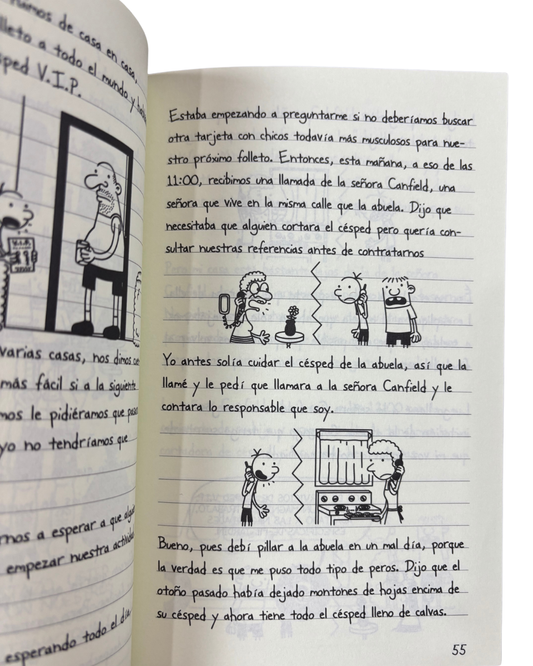 de casa en casa,
folleto a todo el mundo y
césped V.I.P.
varias casas, nos dimos
más fácil si a la siguiente
le pidiéramos que
yo no tendríamos que
a esperar a que
empezar nuestra
esperando todo el día
Estaba empezando a preguntarme si no deberíamos buscar
otra tarjeta con chicos todavía más musculosos para nue-
stro próximo folleto. Entonces, esta mañana, a eso de las
11:00, recibimos una llamada de la señora Canfield, una
señora que vive en la misma calle que la abuela. Dijo que
necesitaba que alguien cortara el césped pero quería con-
sultar nuestras referencias antes de contratarnos
Yo antes solía cuidar el césped de la abuela, así que la
llamé y le pedí que llamara a la señora Canfield y le
contara lo responsable que soy.
Bueno, pues debí pillar a la abuela en un mal día, porque
la verdad es que me puso todo tipo de peros. Dijo que el
otoño pasado había dejado montones de hojas encima de
su césped y ahora tiene todo el césped lleno de calvas.
55